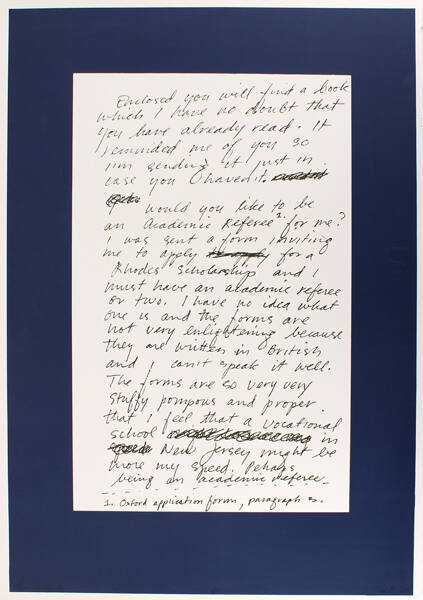 Enclosed you will find a book
which I have no doubt that
you have already read. It
reminded me of you so
I'm sending it just in
case you haven't.
would you like to be
an Academic Referee¹ for me?
I was sent a form inviting
me to apply for a
Rhodes Scholarship and I
must have an academic referee
or two. I have no idea what
one is and the forms are
not very enlightening because
they are written in British
and I can't speak it well.
The forms are so very very
stuffy pompous and proper
that I feel that a vocational
school in
New Jersey might be
more my speed. Pehaps
being an academic referee
1. Oxford application form, paragraph 3.